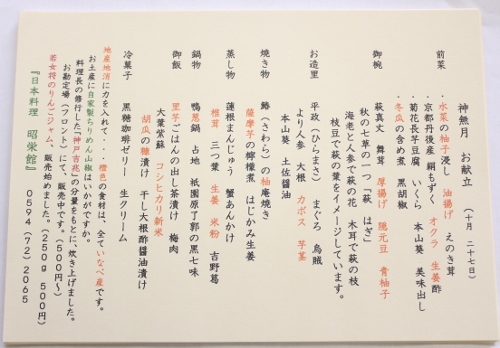 神無月　お献立　（十月　二十七日）
前菜
・水菜の柚子浸し　油揚げ　えのき茸
・京都丹後産　絹もずく　オクラ　生姜酢
・菊花長芋豆腐　いくら　本山葵　美味出し
・冬瓜の含め煮　黒胡椒
御椀
萩真丈　舞茸　厚揚げ　隠元豆　青柚子
秋の七草の一つ「萩　はぎ」
海老と人参で萩の花　木耳で萩の枝
枝豆で萩の葉をイメージしています。
お造里
平政（ひらまさ）　まぐろ　烏賊
より人参　大根　カボス　芋茎
本山葵　土佐醤油
焼き物
鰆（さわら）の柚庵焼き
薩摩芋の檸檬煮　はじかみ生姜
蒸し物
蓮根まんじゅう　蟹あんかけ
椎茸　三つ葉　生姜　米粉　吉野葛
鍋物
鴨葱鍋　占地　祇園原了郭の黒七味
御飯
里芋ごはんの出し茶漬け　梅肉
大葉紫蘇　コシヒカリ新米
胡瓜の糠漬け　干し大根酢醤油漬け
冷菓子
黒糖珈琲ゼリー　生クリーム
地産地消に力を入れて・・・橙色の食材は、全ていなべ産です。
お土産に自家製ちりめん山椒はいかがですか。
料理長の修行した「神戸吉兆」の分量をもとに、炊き上げました。
お勘定場（フロント）にて、販売中です。（500円〜）
若女将のりんごジャム、販売始めました。（250g　500円）
『日本料理　昭栄館』　0594（72）2065